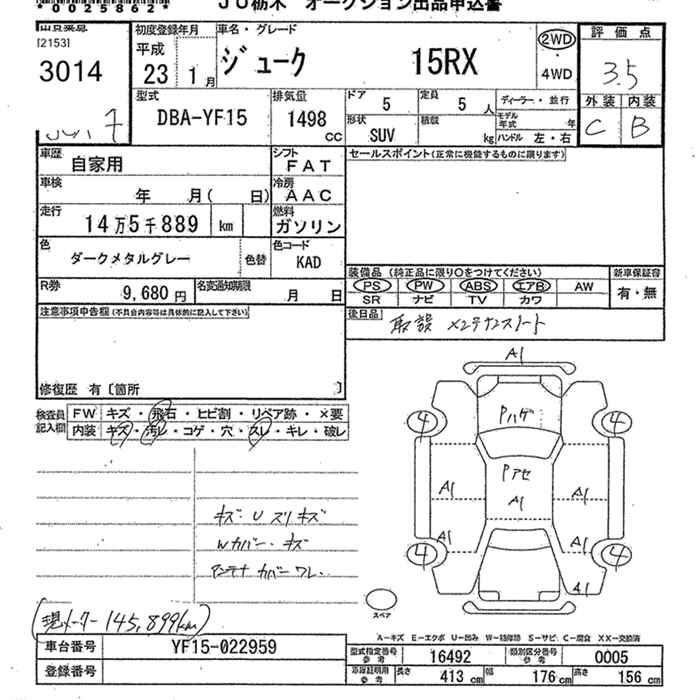 *0025862*
JU栃木 オークション出品申込書
[2153]
3014
初度登録年月
平成
23 1月
車名・グレード
ジューク 15RX
2WD
4WD
評価点
3.5
外装 内装
C B
型式
DBA-YF15
排気量
1498 cc
ドア 5
定員 5人
形状 SUV
積載 kg
ディーラー・並行
モデル年式 年
ハンドル 左・右
車歴 自家用
シフト FAT
セールスポイント(正常に機能するものに限ります)
車検 年 月( 日)
冷房 AAC
走行 14万5千889 km
燃料 ガソリン
色 ダークメタルグレー 色替
色コード KAD
R券 9,680円
名変通知期限 月 日
装備品(純正品に限り○をつけてください)
新車保証書
PS PW ABS エアB AW
SR ナビ TV カワ
有・無
後日品 取説 メンテナンスノート
注意事項申告欄(不具合内容等は具体的に記入して下さい)
修復歴 有〔箇所 〕
検査員記入欄
FW キズ・飛石・ヒビ割・リペア跡・×要
内装 キズ・汚レ・コゲ・穴・スレ・キレ・破レ
キズ・U スリキズ
Wカバー・キズ
アンテナカバーワレ
(現メーター145,899km)
A1
Pハゲ
4 4
Pアセ
A1
A1 A1
A1 A1
4 4
A1
スペア
A-キズ E-エクボ U-凹み W-補修跡 S-サビ C-腐食 XX-交換済
車台番号 YF15-022959
登録番号
型式指定番号 参考 16492
類別区分番号 参考 0005
車庫証明用 参考 長さ 413cm 幅 176cm 高さ 156cm